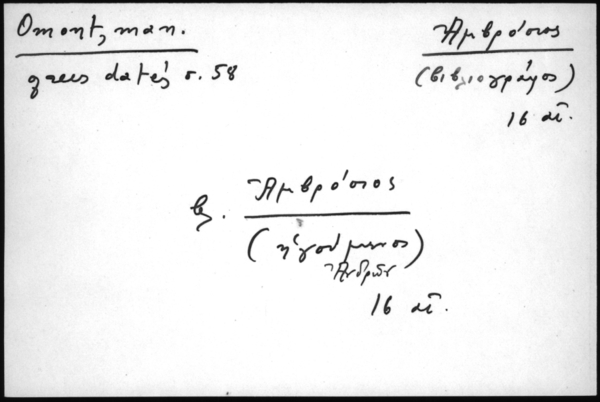 Omont, man.
grecs datés σ. 58
Ἀμβρόσιος
(βιβλιογράφος)
16 αἰ.
βλ. Ἀμβρόσιος
(ἡγούμενος)
Ἀνδρῶν
16 αἰ.